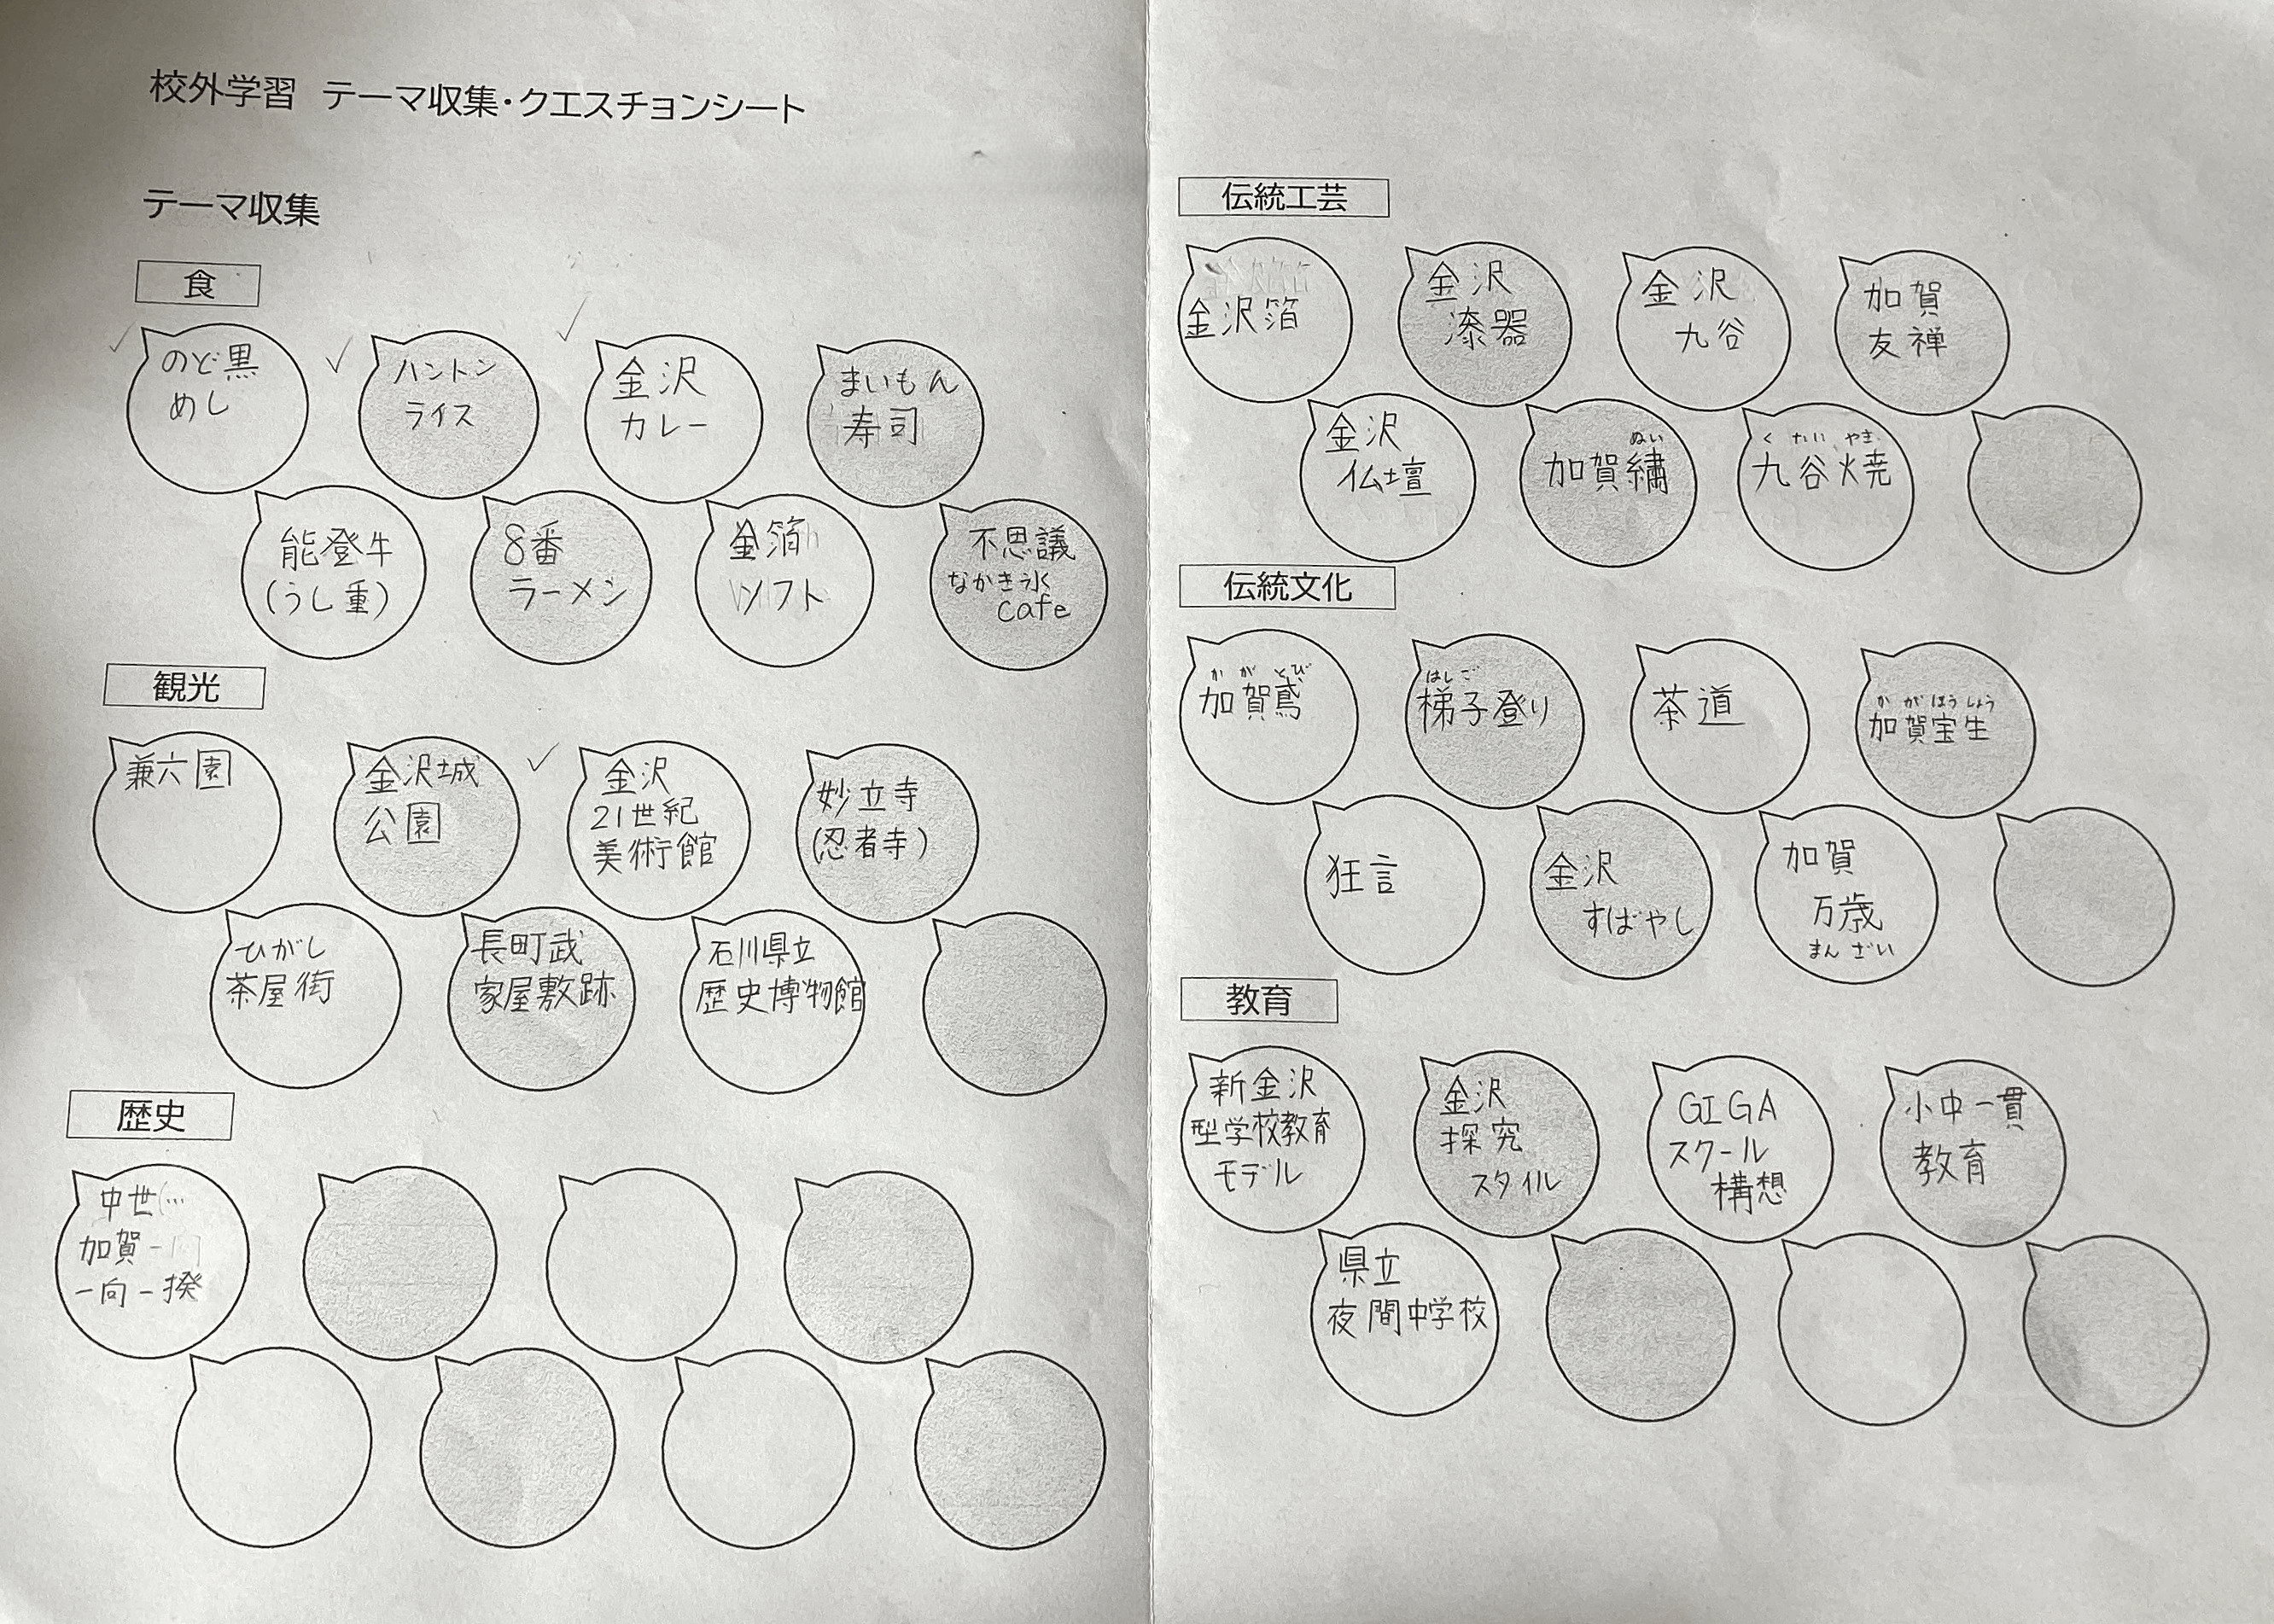 校外学習 テーマ収集・クエスチョンシート
テーマ収集
食
のど黒
めし
ハントン
ライス
金沢
カレー
まいもん
寿司
能登牛
(うし重)
8番
ラーメン
金箔
ソフト
不思議
なかき氷
cafe
観光
兼六園
金沢城
公園
金沢
21世紀
美術館
妙立寺
(忍者寺)
ひがし
茶屋街
長町武
家屋敷跡
石川県立
歴史博物館
歴史
中世(…
加賀
一向一揆
伝統工芸
金沢箔
金沢
漆器
金沢
九谷
加賀
友禅
金沢
仏壇
ぬい
加賀繍
くたにやき
九谷焼
伝統文化
かがとび
加賀鳶
はしご
梯子登り
茶道
かがほうしょう
加賀宝生
狂言
金沢
すばやし
加賀
万歳
まんざい
教育
新金沢
型学校教育
モデル
金沢
探究
スタイル
GIGA
スクール
構想
小中一貫
教育
県立
夜間中学校